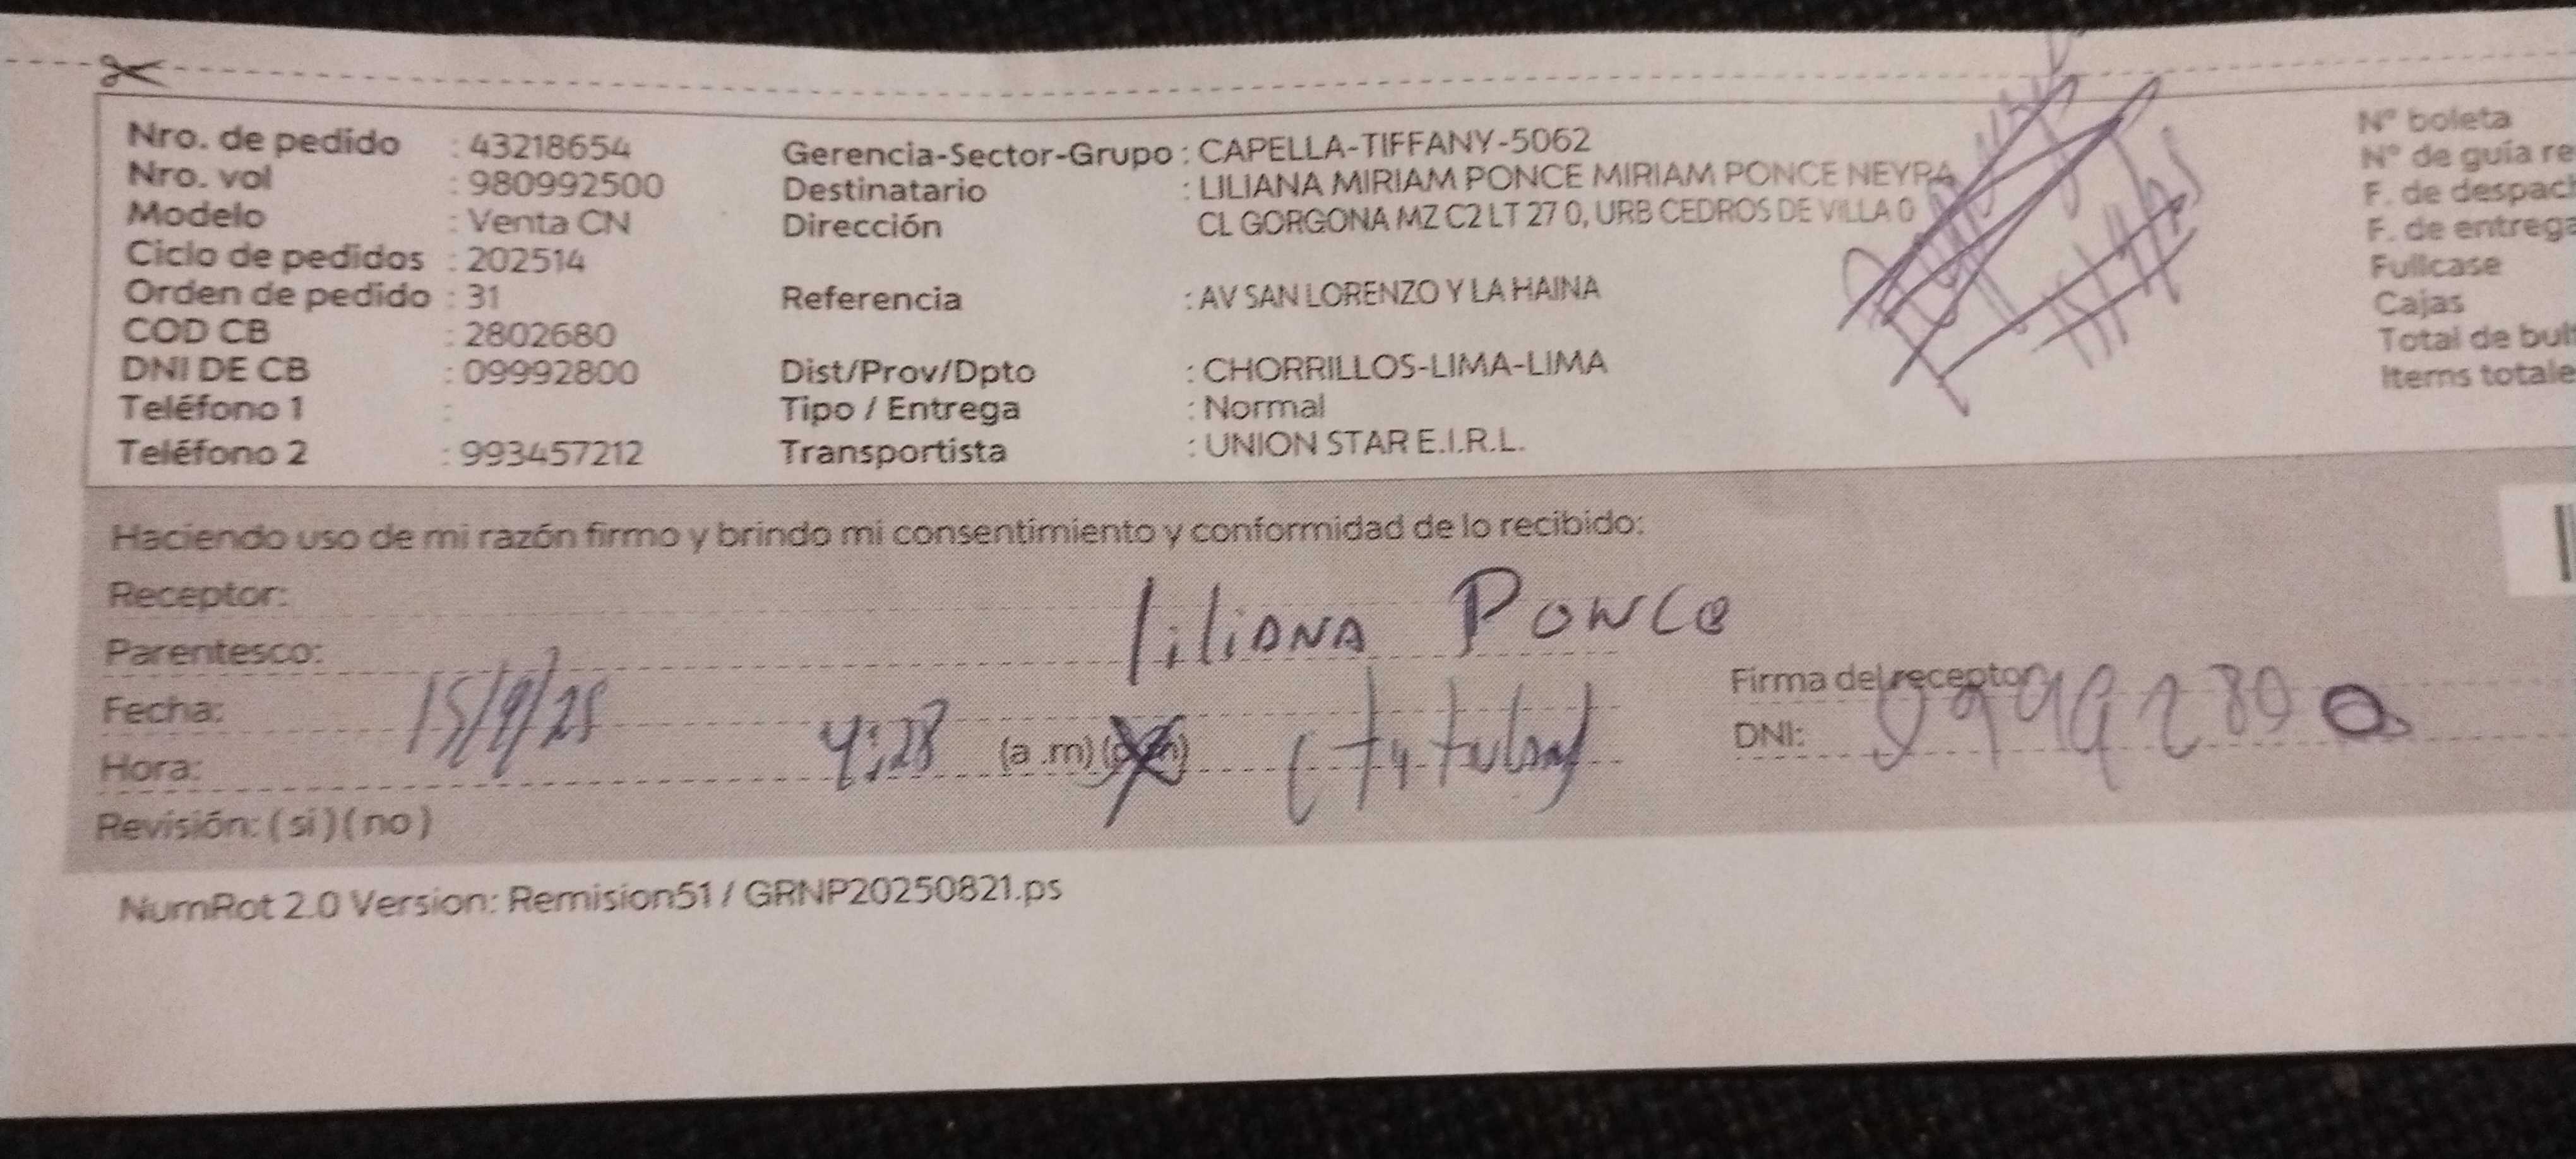 Nro. de pedido : 43218654
Nro. vol : 980992500
Modelo : Venta CN
Ciclo de pedidos : 202514
Orden de pedido : 31
COD CB : 2802680
DNI DE CB : 09992800
Teléfono 1 :
Teléfono 2 : 993457212
Gerencia-Sector-Grupo : CAPELLA-TIFFANY-5062
Destinatario : LILIANA MIRIAM PONCE MIRIAM PONCE NEYRA
Dirección CL GORGONA MZ C2 LT 27 0, URB CEDROS DE VILLA 0
Referencia : AV SAN LORENZO Y LA HAINA
Dist/Prov/Dpto : CHORRILLOS-LIMA-LIMA
Tipo / Entrega : Normal
Transportista : UNION STAR E.I.R.L.
N° boleta
N° de guía re
F. de despach
F. de entrega
Fullcase
Cajas
Total de bul
Items totale
Haciendo uso de mi razón firmo y brindo mi consentimiento y conformidad de lo recibido:
Receptor: liliANA PONCe
Parentesco:
Fecha: 15/9/25
Hora: 4:28 (a .m) (p.m) (titular)
Firma del receptor
DNI: 09992800
Revisión: ( si ) ( no )
NumRot 2.0 Version: Remision51 / GRNP20250821.ps